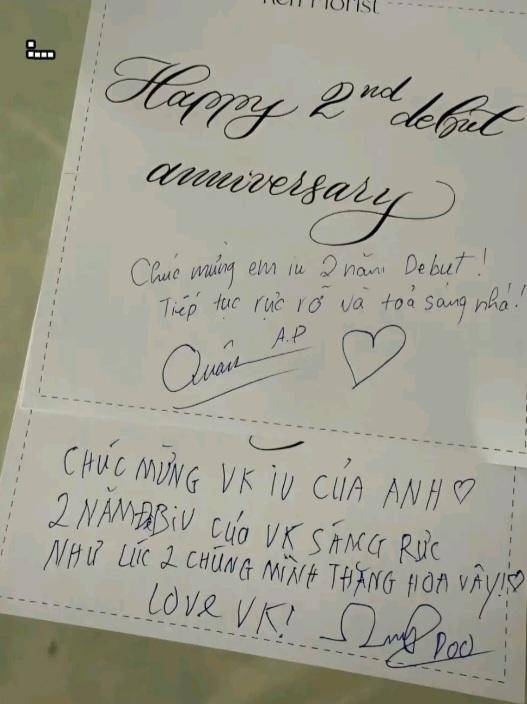 Ken Florist
Happy 2nd debut
anniversary
Chúc mừng em iu 2 năm Debut!
Tiếp tục rực rỡ và toả sáng nhá!
Quân A.P
CHÚC MỪNG VK IU CỦA ANH ♡
2 NĂM ĐBIU CỦA VK SÁNG RỰC
NHƯ LÚC 2 CHÚNG MÌNH THĂNG HOA VẬY!♡
LOVE VK!